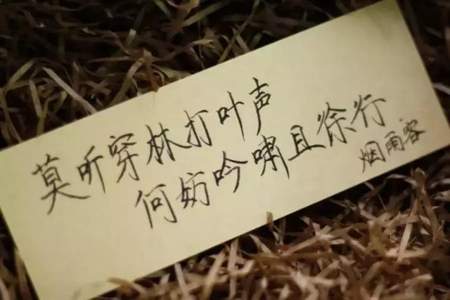 莫听穿林打叶声
何妨吟啸且徐行
烟雨客